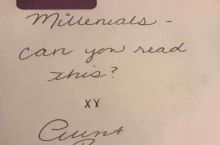 Millenials -
can you read
this?
XY
Aunt